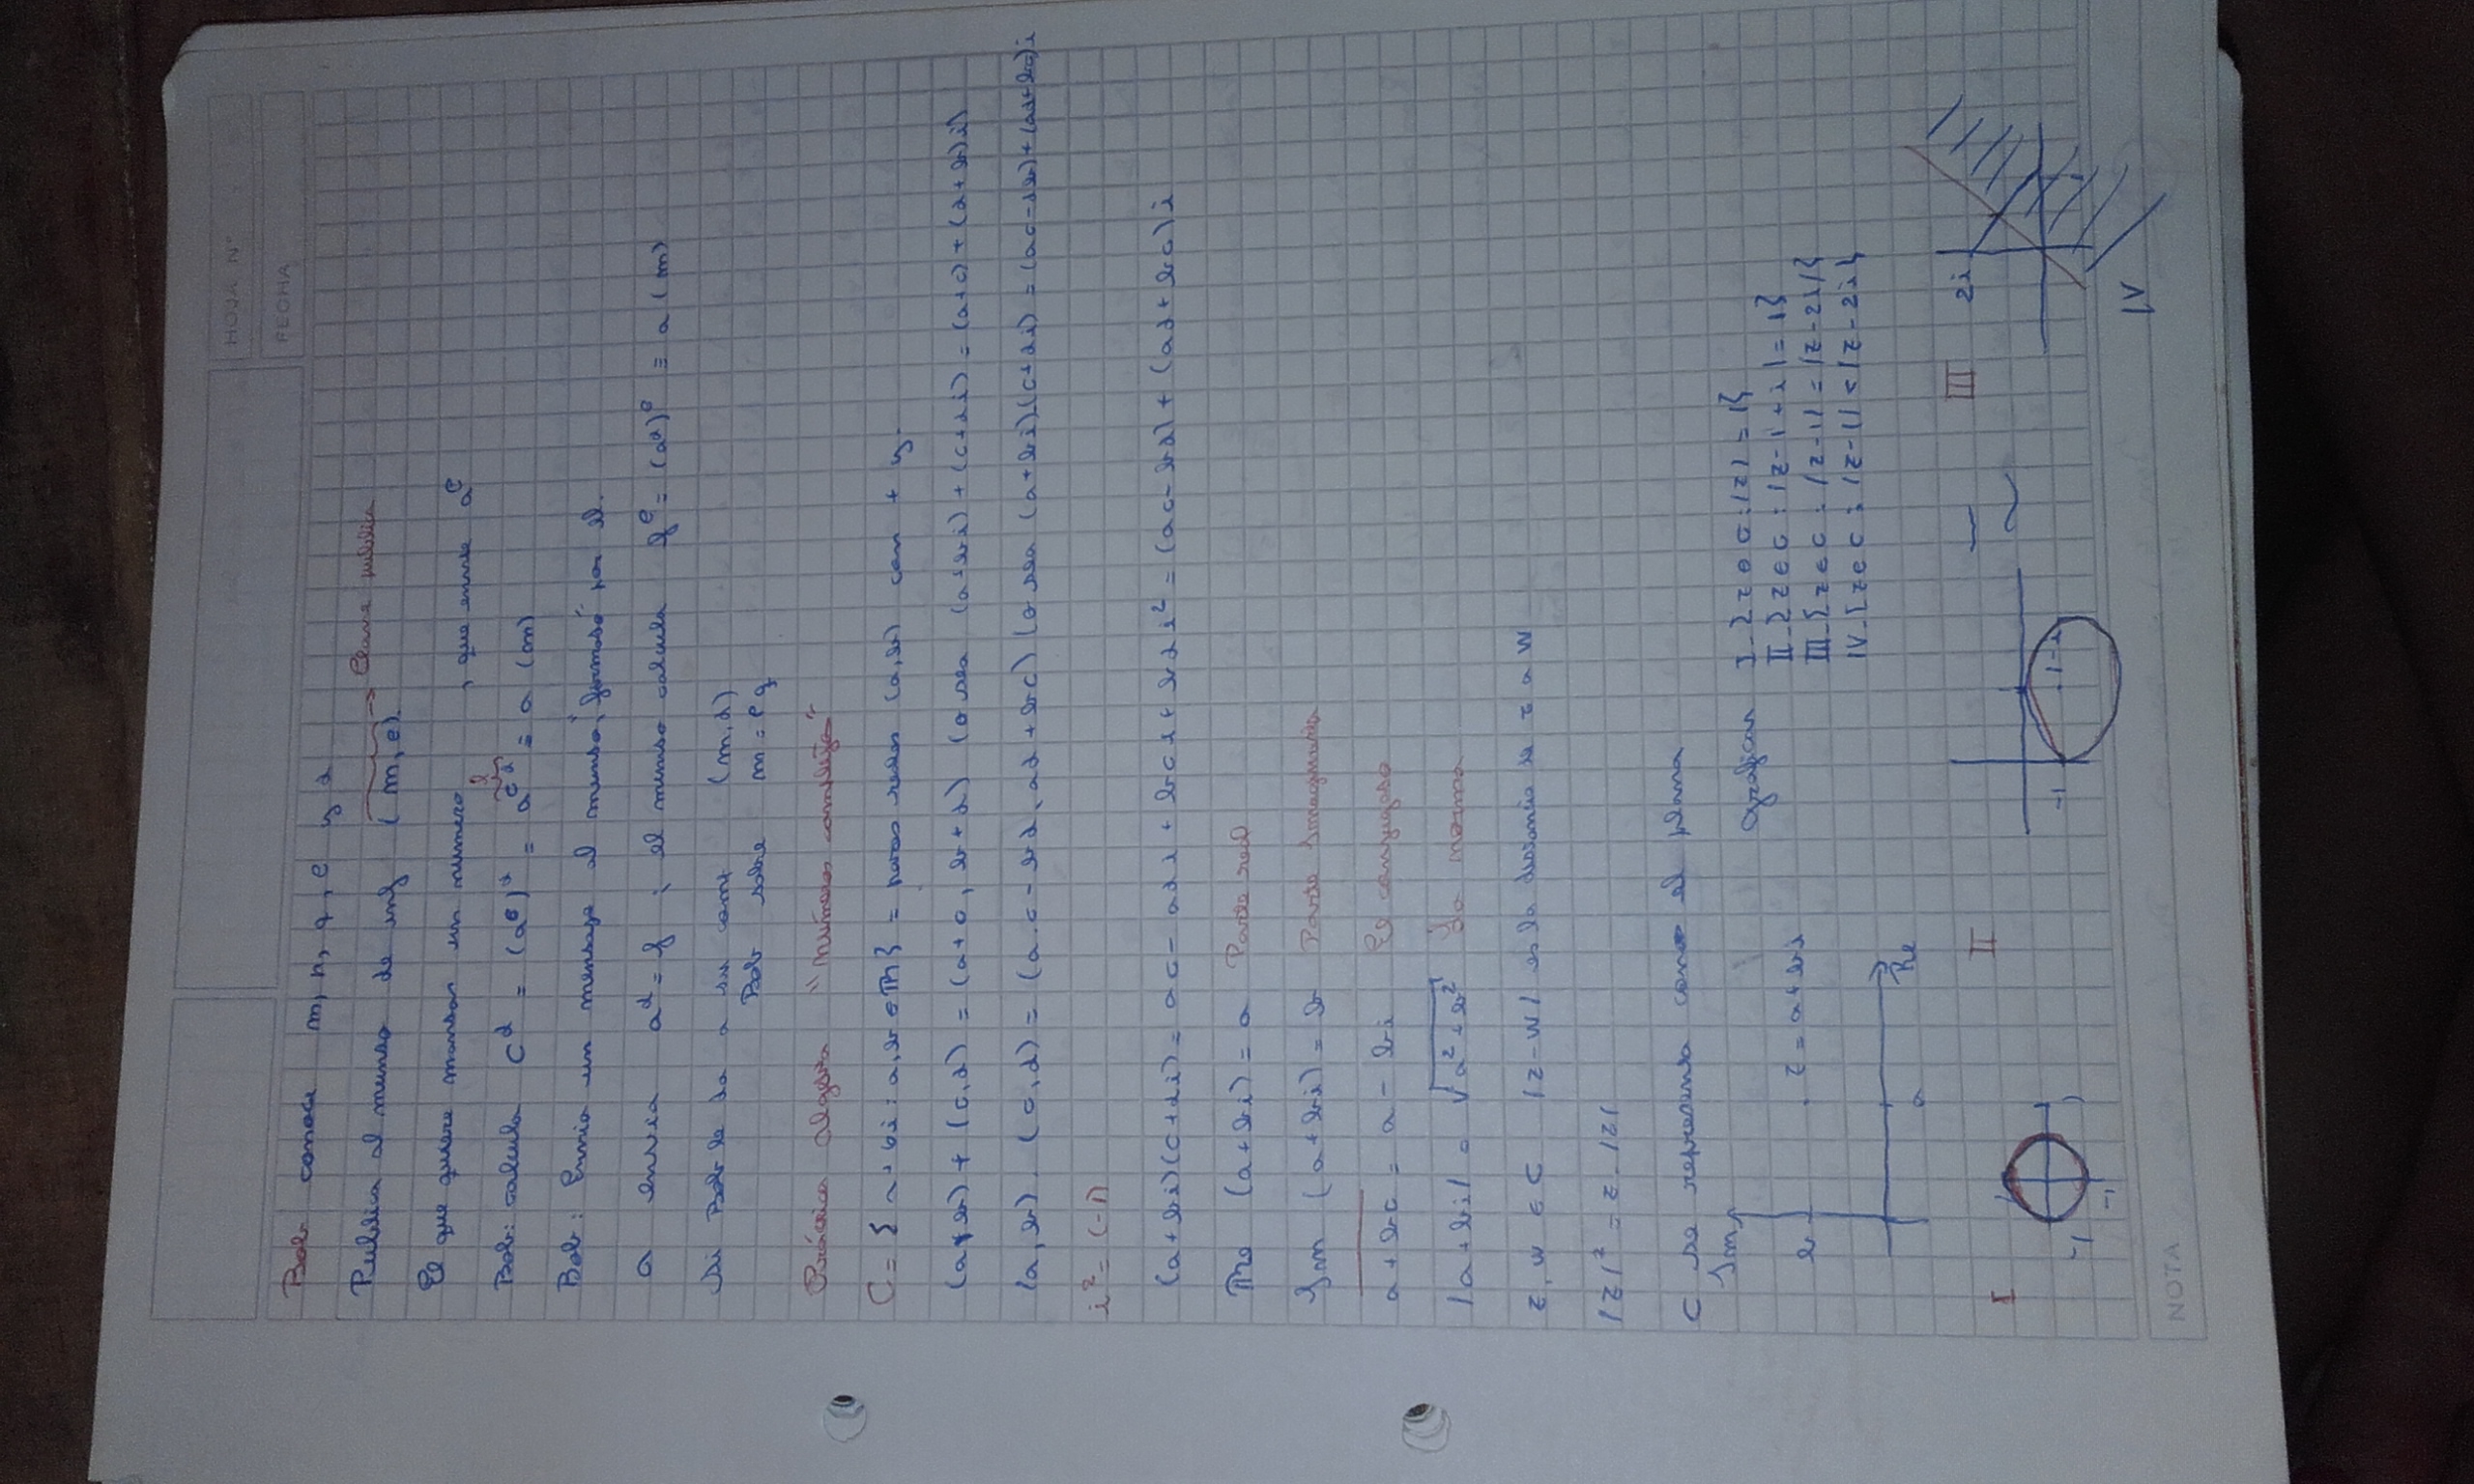 HOJA N°
FECHA
Bob conoce m, n, q, e y d
Publica al mundo de inf (m, e). → Clave publica
El que quiere mandar un numero , que envie a^e
Bob: calcula C^d = (a^e)^d = a^{e d} ≡ a (m)
Bob: Envia un mensaje al mundo, "firmado" por el.
a envia a^d = f ; el mundo calcula f^e = (a^d)^e ≡ a (m)
Si Bob le da a su (m, d)
Bob sobre m = p q
Práctica algebra "números complejos"
C = { a + bi : a, b ∈ R } = pares reales (a, b) con + y .
(a, b) + (c, d) = (a + c, b + d) (o sea (a + bi) + (c + di) = (a + c) + (d + b) i)
(a, b) . (c, d) = (a.c - bd, ad + bc) (o sea (a + bi).(c + di) = (ac - db) + (ad + bc) i
i² = (-1)
(a + bi)(c + di) = ac - adi + bci + bdi² = (ac - bd) + (ad + bc) i
Re (a + bi) = a Parte real
Im (a + bi) = b Parte Imaginaria
a + bc = a - bi El conjugado
|a + bi| = √a² + b² La norma
z, w ∈ C |z - w| es la distancia de z a w
|z|² = z . |z|
C se representa como el plano
Im
b z = a + bi
a Re
Graficar I - {z ∈ C : |z| = 1}
II - {z ∈ C : |z - 1 + i| = 1}
III - {z ∈ C : |z - 1| = |z - 2i|}
IV - {z ∈ C : |z - 1| < |z - 2i|}
I
1
-1
1
-1
II
-1
1 - i
III
2i
IV
NOTA